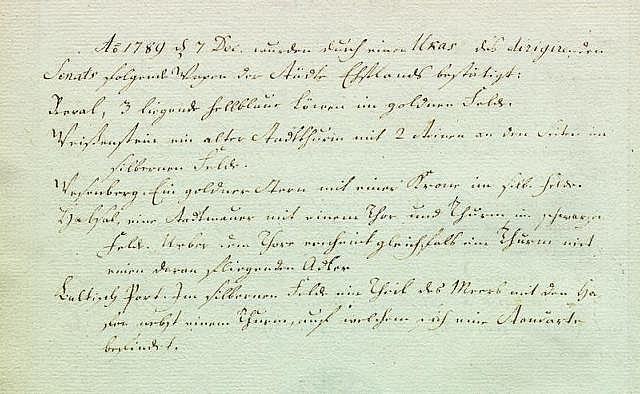 Aõ 1789 d 7 Dec. wurden durch einen Ukas des dirigirenden
Senats folgende Wapen der Städte Ehstlands bestätigt:
Reval, 3 liegende hellblaue Löwen im goldnen Felde.
Weißenstein ein alter Stadtthurm mit 2 Ruinen an den Seiten im
silbernen Felde.
Wesenberg. Ein goldner Stern mit einer Krone im silb. Felde.
Habsal, eine Stadtmauer mit einem Thor und Thurm, im schwarzen
Felde. Ueber dem Thore erscheint gleichfalls ein Thurm mit
einem daran fliegenden Adler
Baltisch Port. Im silbernen Felde ein Theil des Meers mit dem Ha-
fen nebst einem Thurm, auf welchem sich eine Standarte
befindet.